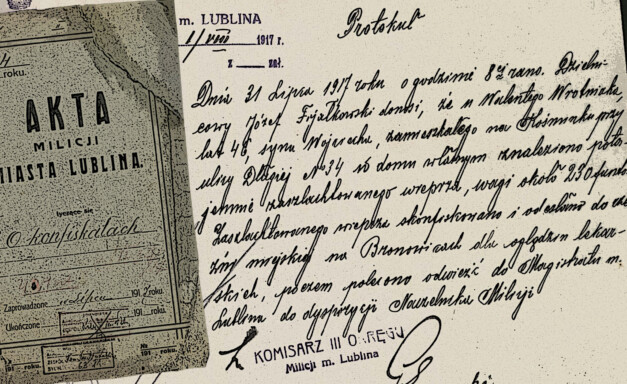 4
roku.
AKTA
MILICJI
MIASTA LUBLINA.
tyczące się
O konfiskatach
Zaprowadzone
191 roku.
Ukończone
191 roku.
m. LUBLINA
1/VIII 1917 r.
z zał.
Protokuł
Dnia 31 Lipca 1917 roku o godzinie 8ej rano. Dzielni-
cowy Józef Fijałkowski donosi, że u Walentego Wrotniaka,
lat 48, syna Wojciecha, zamieszkałego na Kośminku przy
ulicy Długiej № 34 w domu własnym znaleziono pota-
jemnie zaszlachtowanego wieprza, wagi około 230 funtów
Zaszlachtowanego wieprza skonfiskowano i odesłano do rze-
źni miejskiej na Bronowicach dla oględzin lekar-
skich, poczem polecono odwieźć do Magistratu m.
Lublina do dyspozycji Naczelnika Milicji
KOMISARZ III OKRĘGU
Milicji m. Lublina